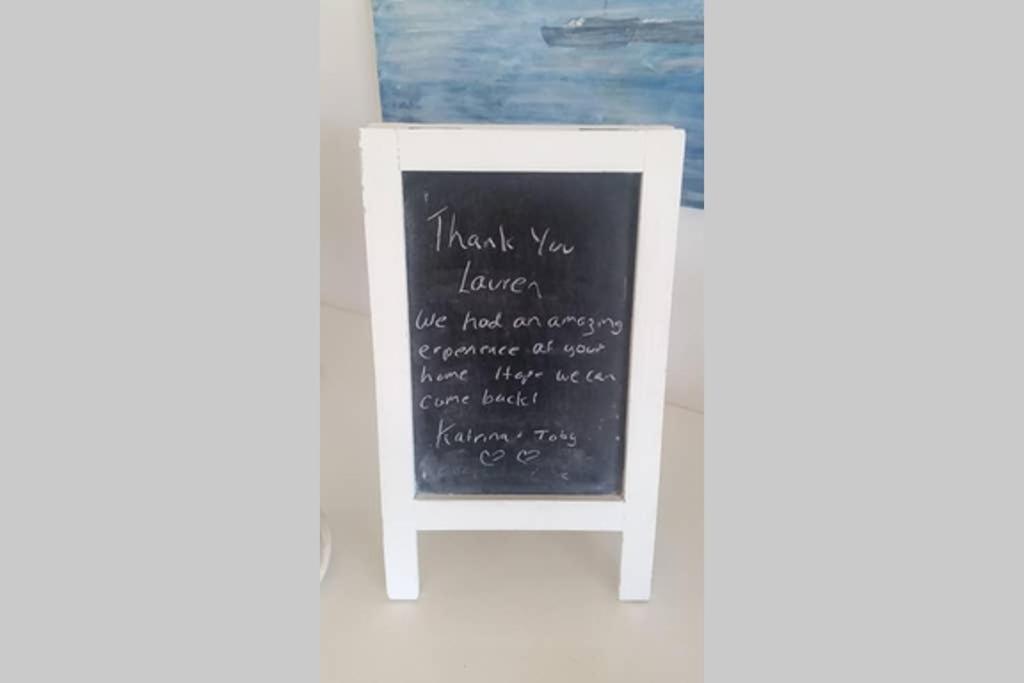 Thank You
Lauren
We had an amazing
experience at your
home Hope we can
come back!
Katrina + Toby
♡ ♡